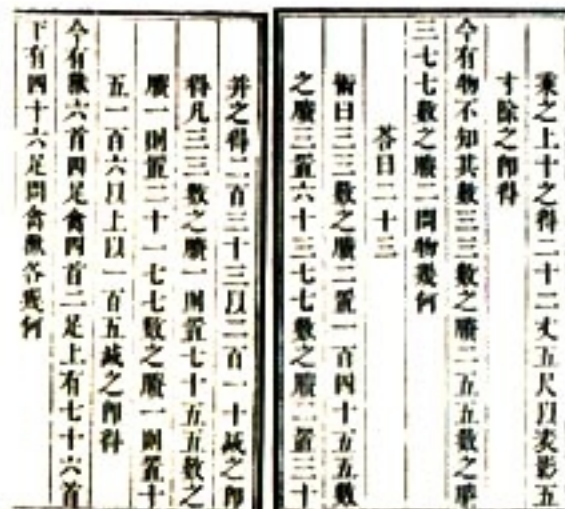 乘之上十之得二十二丈五尺以表影五
寸除之卽得
今有物不知其數三三數之賸二五五數之賸
三七七數之賸二問物幾何
荅曰二十三
術曰三三數之賸二置一百四十五五數
之賸三置六十三七七數之賸二置三十
并之得二百三十三以二百一十減之卽
得凡三三數之賸一則置七十五五數之
賸一則置二十一七七數之賸一則置十
五一百六以上以一百五減之卽得
今有獸六首四足禽四首二足上有七十六首
下有四十六足問禽獸各幾何